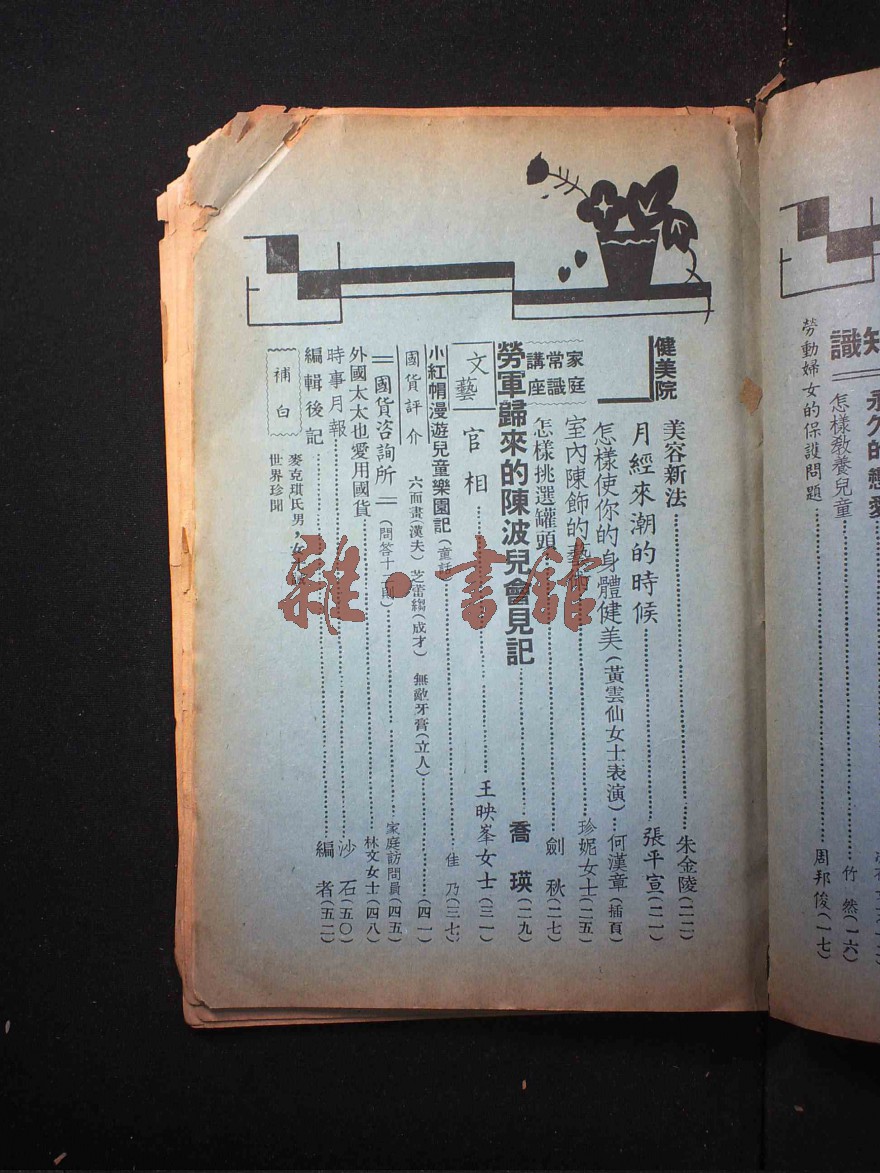 識知
勞動婦女的保護問題 周邦俊(一七)
怎樣教養兒童 竹然(一六)
健美院
美容新法 朱金陵(二二)
月經來潮的時候 張平宣(二一)
怎樣使你的身體健美(黃雲仙女士表演) 何漢章(插頁)
家庭常識講座
室內陳飾的藝術 珍妮女士(二五)
怎樣挑選罐頭 劍秋(二七)
勞軍歸來的陳波兒會見記 喬瑛(二九)
文藝
官相 王映峯女士(三一)
小紅帽漫遊兒童樂園記(童話) 佳乃(三七)
國貨評介 六而畫(漢夫) 芝蕾縐(成才) 無敵牙膏(立人) (四一)
國貨咨詢所(問答十二則) 家庭訪問員(四五)
外國太太也愛用國貨 林文女士(四八)
時事月報 沙石(五〇)
編輯後記 編者(五二)
補白
麥克琪氏男,女
世界珍聞
雜·書館